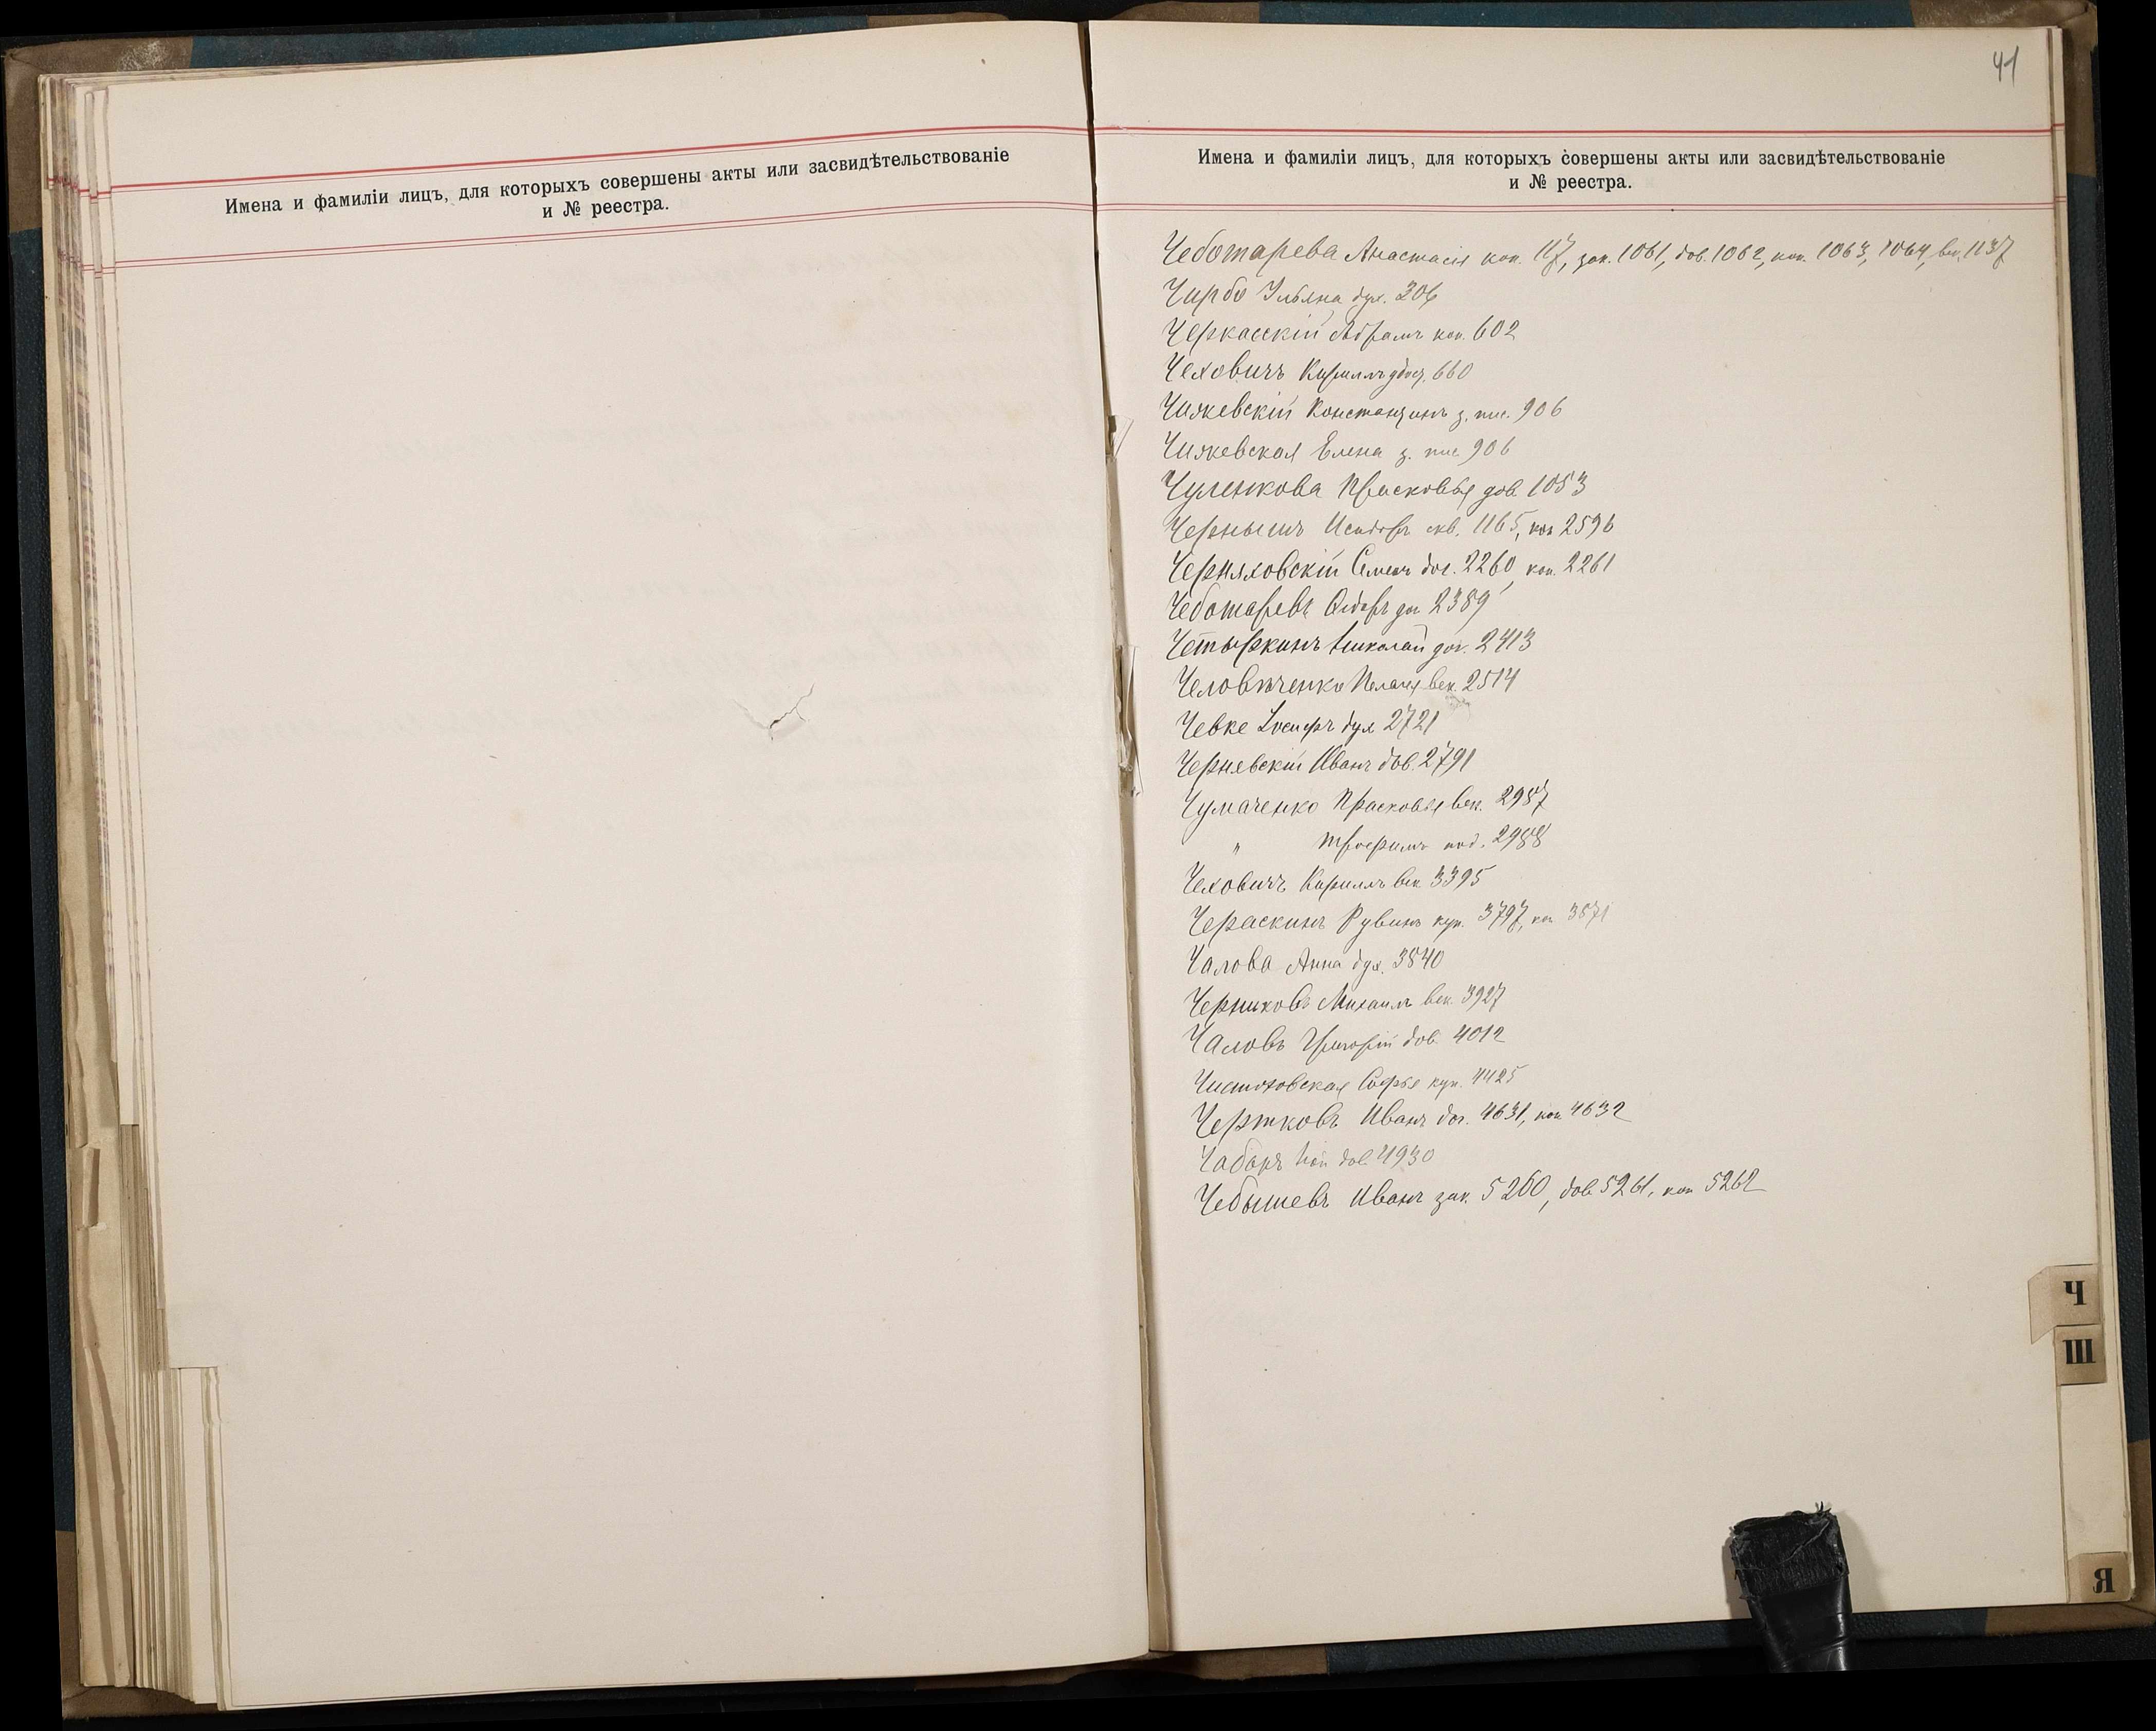 Имена и фамиліи лицъ, для которыхъ совершены акты или засвидѣтельствованіе
и № реестра.
41
Имена и фамиліи лицъ, для которыхъ совершены акты или засвидѣтельствованіе
и № реестра.
Чеботарева Анастасія коп. 117, зак. 1061, дов. 1062, коп. 1063, 1064, век. 1137
Чирбо Ульяна дух. 306
Черкасскій Абрамъ коп. 602
Чеховичъ Кириллъ 660
Чижевскій Константинъ з. пис. 906
Чижевская Елена з. пис. 906
Чуленкова Прасковья дов. 1053
Чернышъ Исидоръ 1165, коп. 2596
Черняховскій Семенъ дог. 2260, коп. 2261
Чеботаревъ Ѳидоръ 2389
Четыркинъ Николай дог. 2413
Человѣченко Пелагея век. 2514
Чевке Іосифъ дух. 2721
Чернявскій Иванъ дов. 2791
Чумаченко Прасковья век. 2987
" Трофимъ под. 2988
Чеховичъ Кириллъ век. 3395
Чераскинъ Рувинъ куп. 3797, коп. 3871
Чалова Анна дух. 3840
Черниковъ Михаилъ век. 3927
Чаловъ Григорій дов. 4012
Чистоховская Софья куп. 4425
Чертковъ Иванъ дог. 4631, коп. 4632
Чабанъ дов. 4930
Чебышевъ Иванъ зак. 5260, дов. 5261, коп. 5262
Ч
Ш
Я